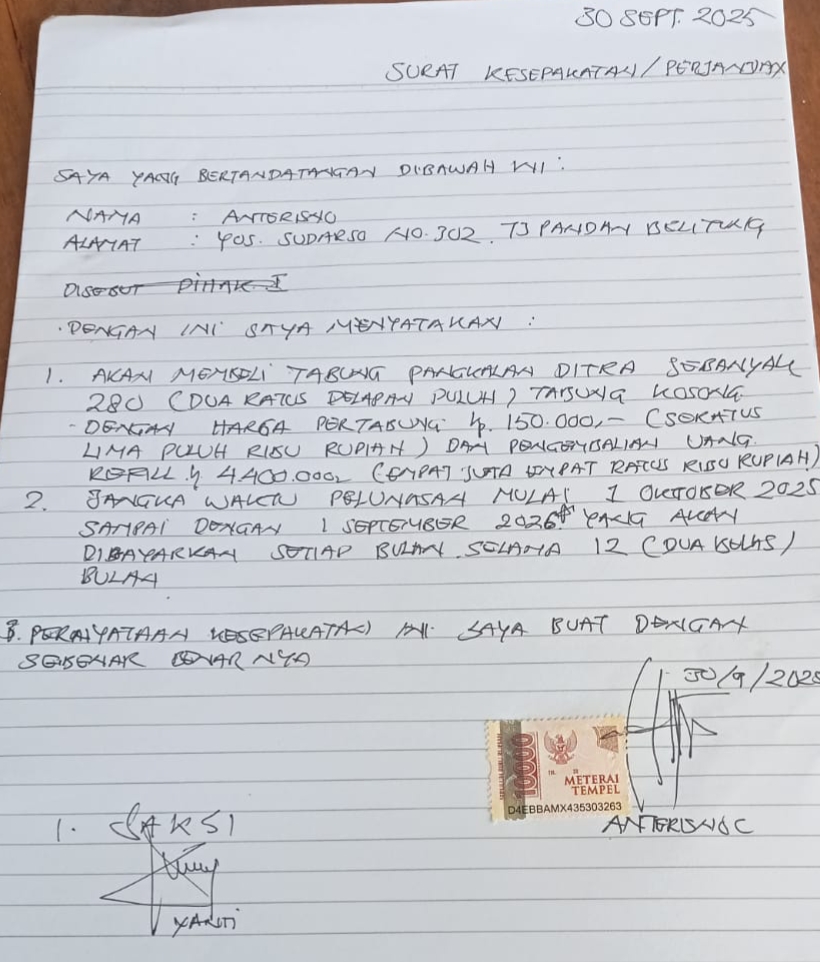 30 SEPT. 2025
SURAT KESEPAKATAN / PERJANJIAN
SAYA YANG BERTANDATANGAN DIBAWAH INI :
NAMA : ANTERISNO
ALAMAT : YOS. SUDARSO NO. 302. TJ PANDAN BELITUNG
DISEBUT PIHAK I
· DENGAN INI SAYA MENYATAKAN :
1. AKAN MEMBELI TABUNG PANGKALAN DITRA SEBANYAK
280 (DUA RATUS DELAPAN PULUH) TABUNG KOSONG
- DENGAN HARGA PERTABUNG Rp. 150.000,- (SERATUS
LIMA PULUH RIBU RUPIAH) DAN PENGEMBALIAN UANG
REFILL Rp 4.400.000, (EMPAT JUTA EMPAT RATUS RIBU RUPIAH)
2. JANGKA WAKTU PELUNASAN MULAI 1 OKTOBER 2025
SAMPAI DENGAN 1 SEPTEMBER 2026 YANG AKAN
DIBAYARKAN SETIAP BULAN SELAMA 12 (DUA BELAS)
BULAN
3. PERNYATAAN KESEPAKATAN INI SAYA BUAT DENGAN
SEBENAR BENAR NYA
30/9/2025
10000
METERAI
TEMPEL
D4EBBAMX435303263
ANTERISNO C
1. SAKSI
YANTI